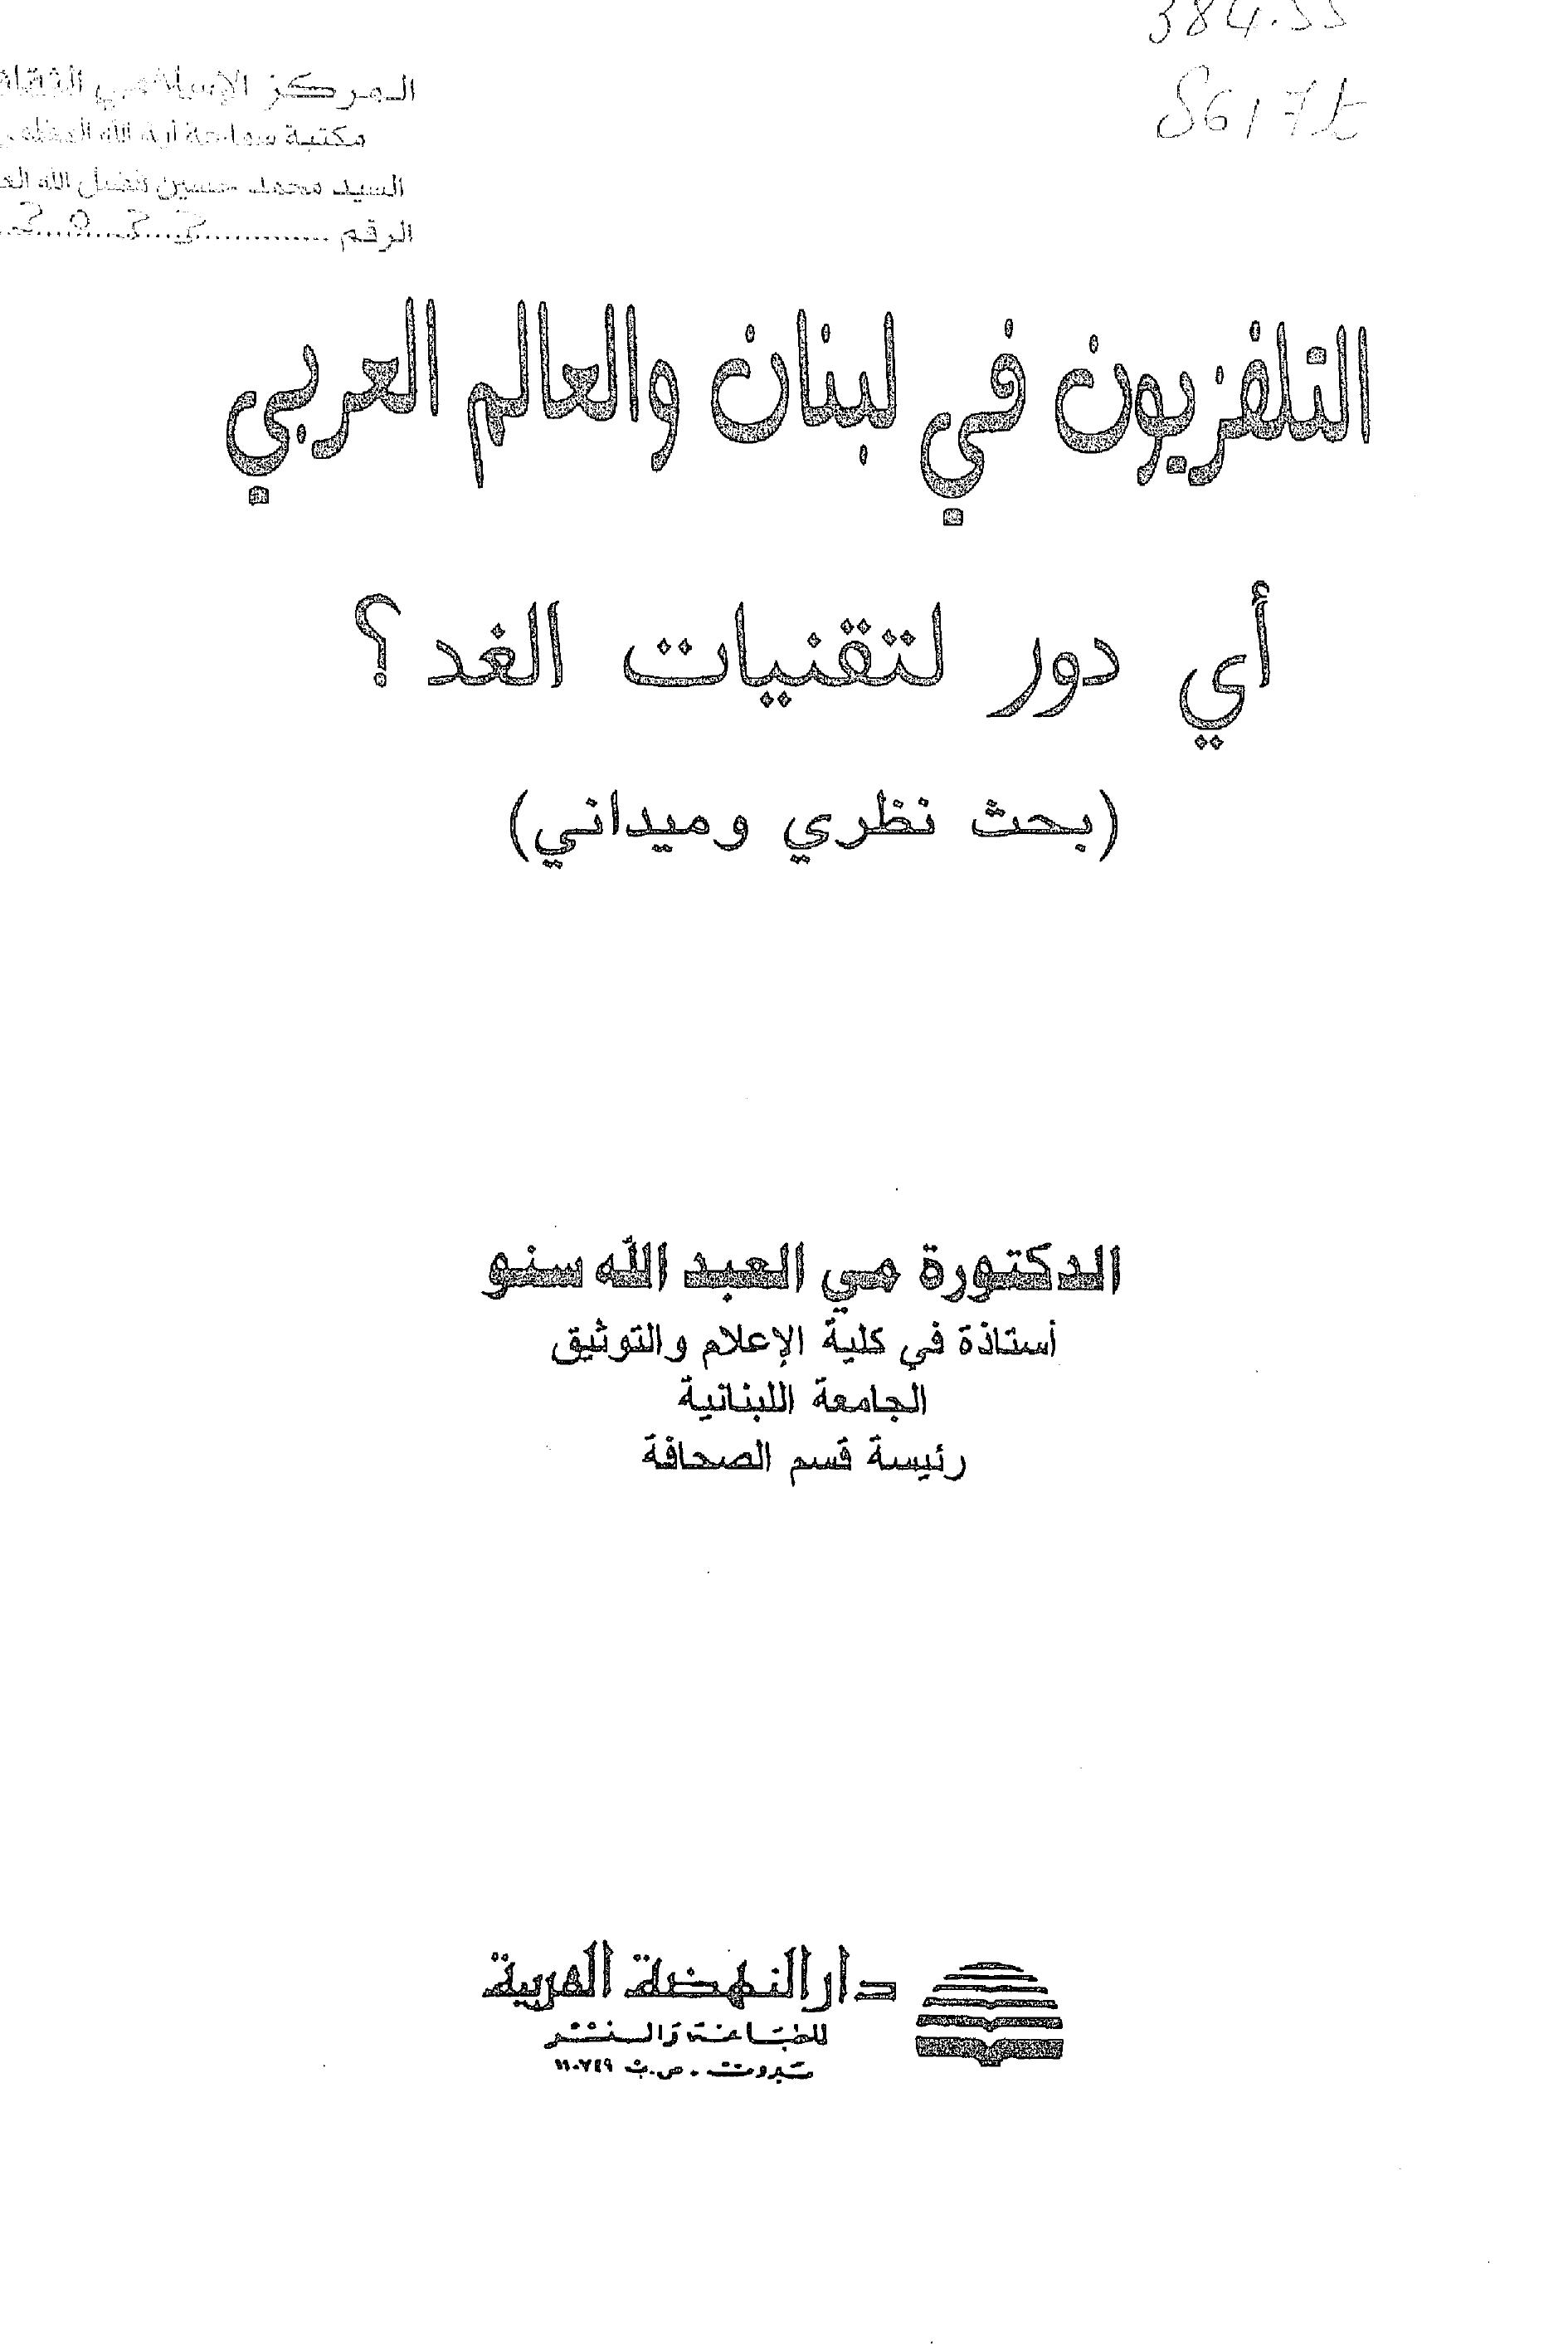 384.55
S617t
المركز الإسلامي الثقافي
مكتبة سماحة آية الله العظمى
السيد محمد حسين فضل الله العا
الرقم
التلفزيون في لبنان والعالم العربي
أي دور لتقنيات الغد ؟
(بحث نظري وميداني)
الدكتورة مي العبد الله سنو
أستاذة في كلية الإعلام والتوثيق
الجامعة اللبنانية
رئيسة قسم الصحافة
دار النهضة العربية
للطباعة والنشر
بيروت - ص.ب ١١٠٧٤٩